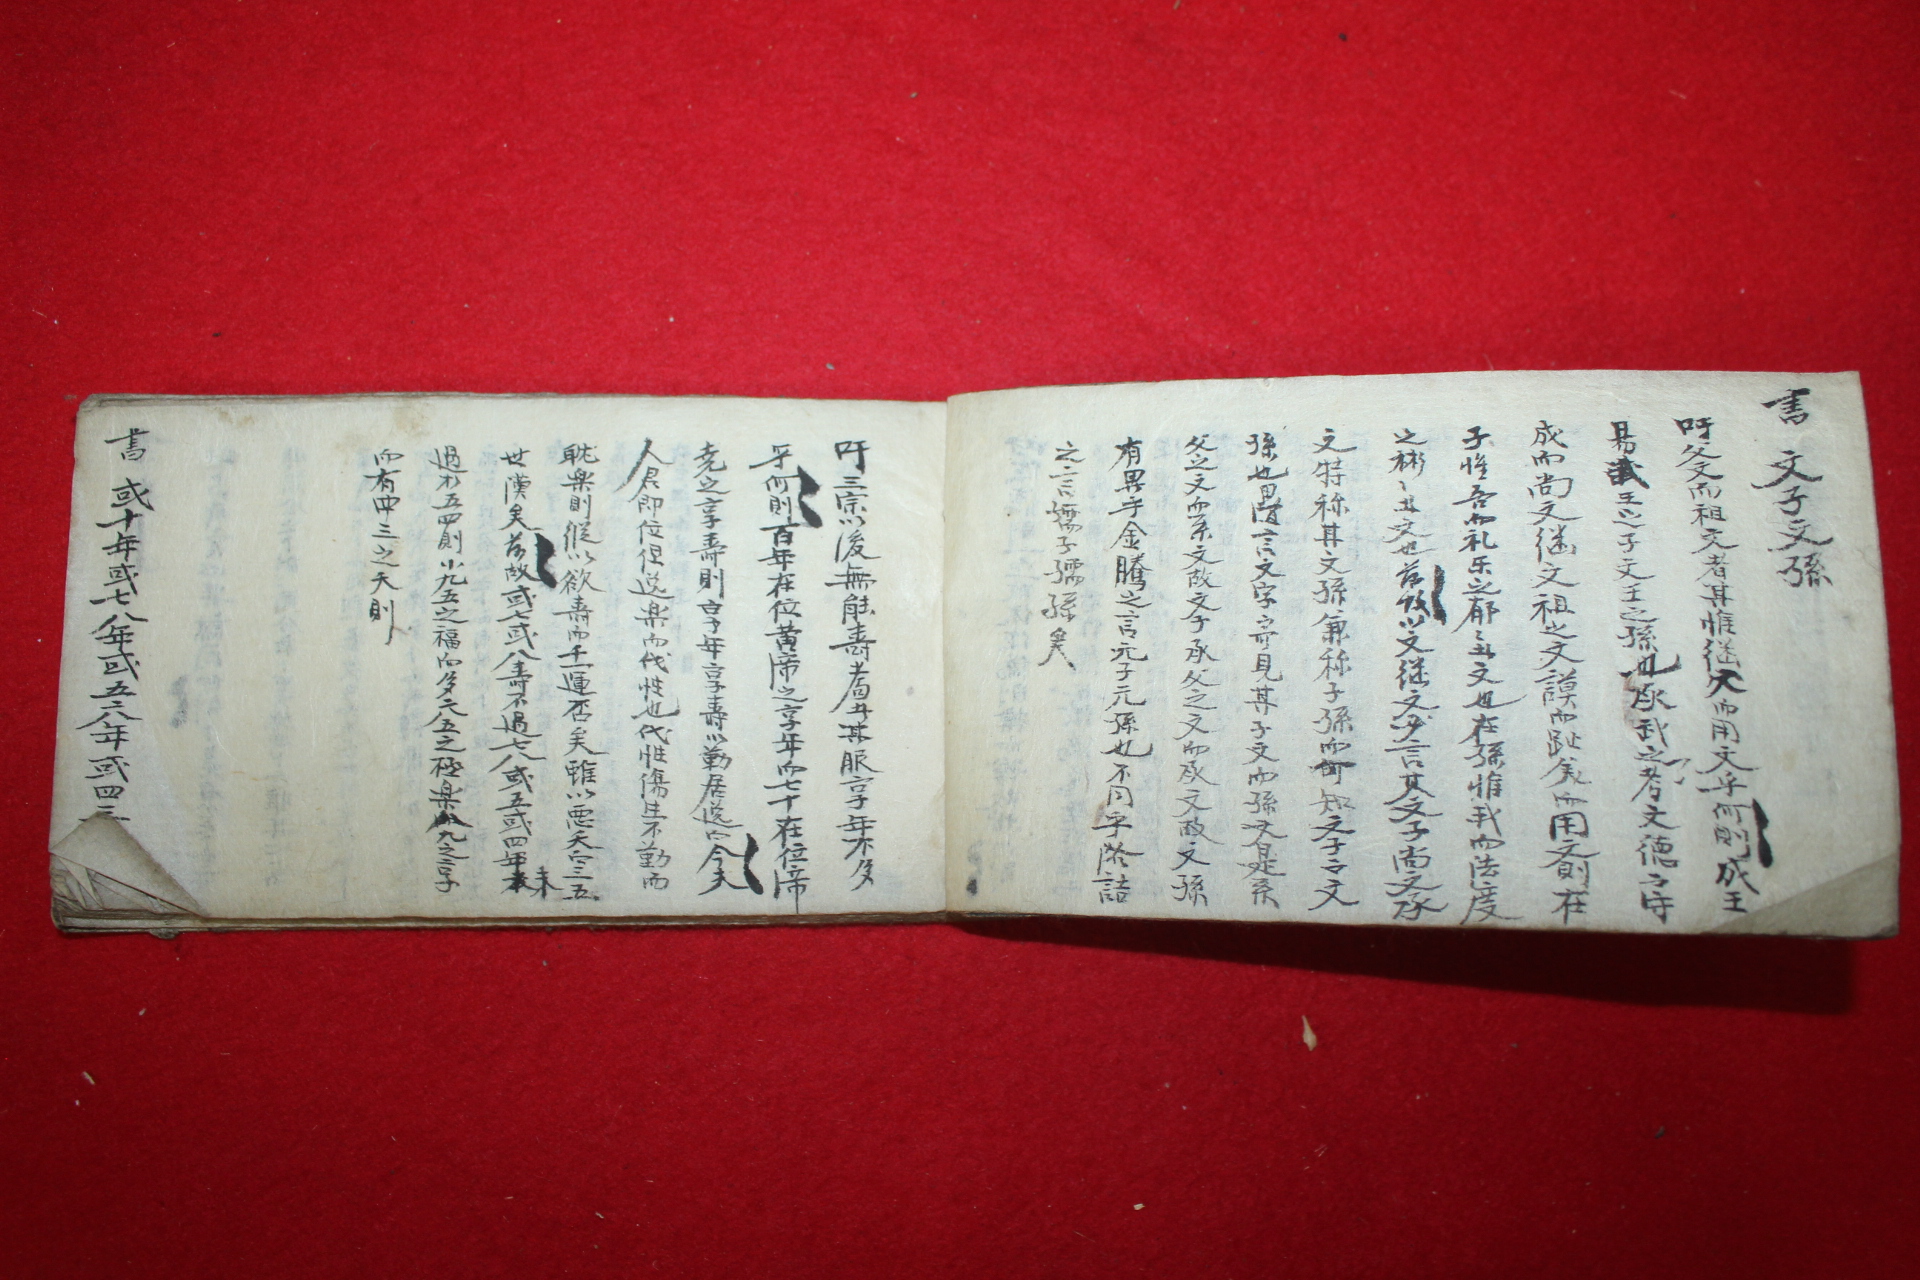 書 文子文孫
吁父文而祖文者其惟继文而用文乎何則成王
易武王之子文王之孫也承武之考文德之守
成而尚文继文祖之文謨而趾美而用文則在
子惟吾而礼乐之郁〻其文也在孫惟我而法度
之彬〻其文也若故以文继文者言其文子尚文承
文特称其文孫兼称子孫而何知文子之文
孫也單言文字亦見其子文而孫文是系
父之文而系文故文子承父之文而承文故文孫
有異乎金騰之言元子元孫也不同乎洛誥
之言孺子孺孫矣
吁三宗以後無能壽耇其服享年不多
乎何則百年在位黄帝之享年而七十在位帝
尭之享壽則享年享壽以勤居逸而今夫
人君即位但逸楽而伐性也伐性傷生不勤而
耽楽則從以欲壽而千運否矣雖以悪夭而三五
世漠矣若故或七或八壽不過七八或五或四年未
過於五四則以九五之福而多六五之極楽以九之享
而有四三之夭則
書 或十年或七八年或五六年或四三